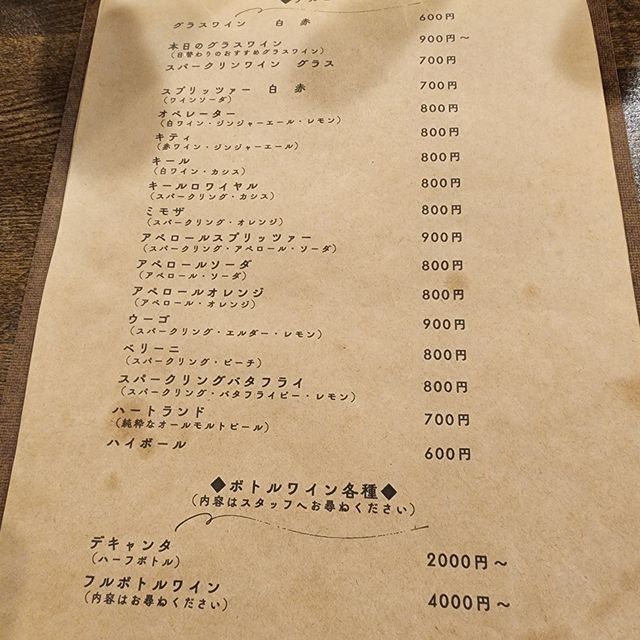 グラスワイン 白 赤 600円
本日のグラスワイン 900円～
(日替わりのおすすめグラスワイン)
スパークリンワイン グラス 700円
スプリッツァー 白 赤 700円
(ワインソーダ)
オペレーター 800円
(白ワイン・ジンジャーエール・レモン)
キティ 800円
(赤ワイン・ジンジャーエール)
キール 800円
(白ワイン・カシス)
キールロワイヤル 800円
(スパークリング・カシス)
ミモザ 800円
(スパークリング・オレンジ)
アペロールスプリッツァー 900円
(スパークリング・アペロール・ソーダ)
アペロールソーダ 800円
(アペロール・ソーダ)
アペロールオレンジ 800円
(アペロール・オレンジ)
ウーゴ 900円
(スパークリング・エルダー・レモン)
ベリーニ 800円
(スパークリング・ピーチ)
スパークリングバタフライ 800円
(スパークリング・バタフライピー・レモン)
ハートランド 700円
(純粋なオールモルトビール)
ハイボール 600円
◆ボトルワイン各種◆
(内容はスタッフへお尋ねください)
デキャンタ 2000円～
(ハーフボトル)
フルボトルワイン 4000円～
(内容はお尋ねください)